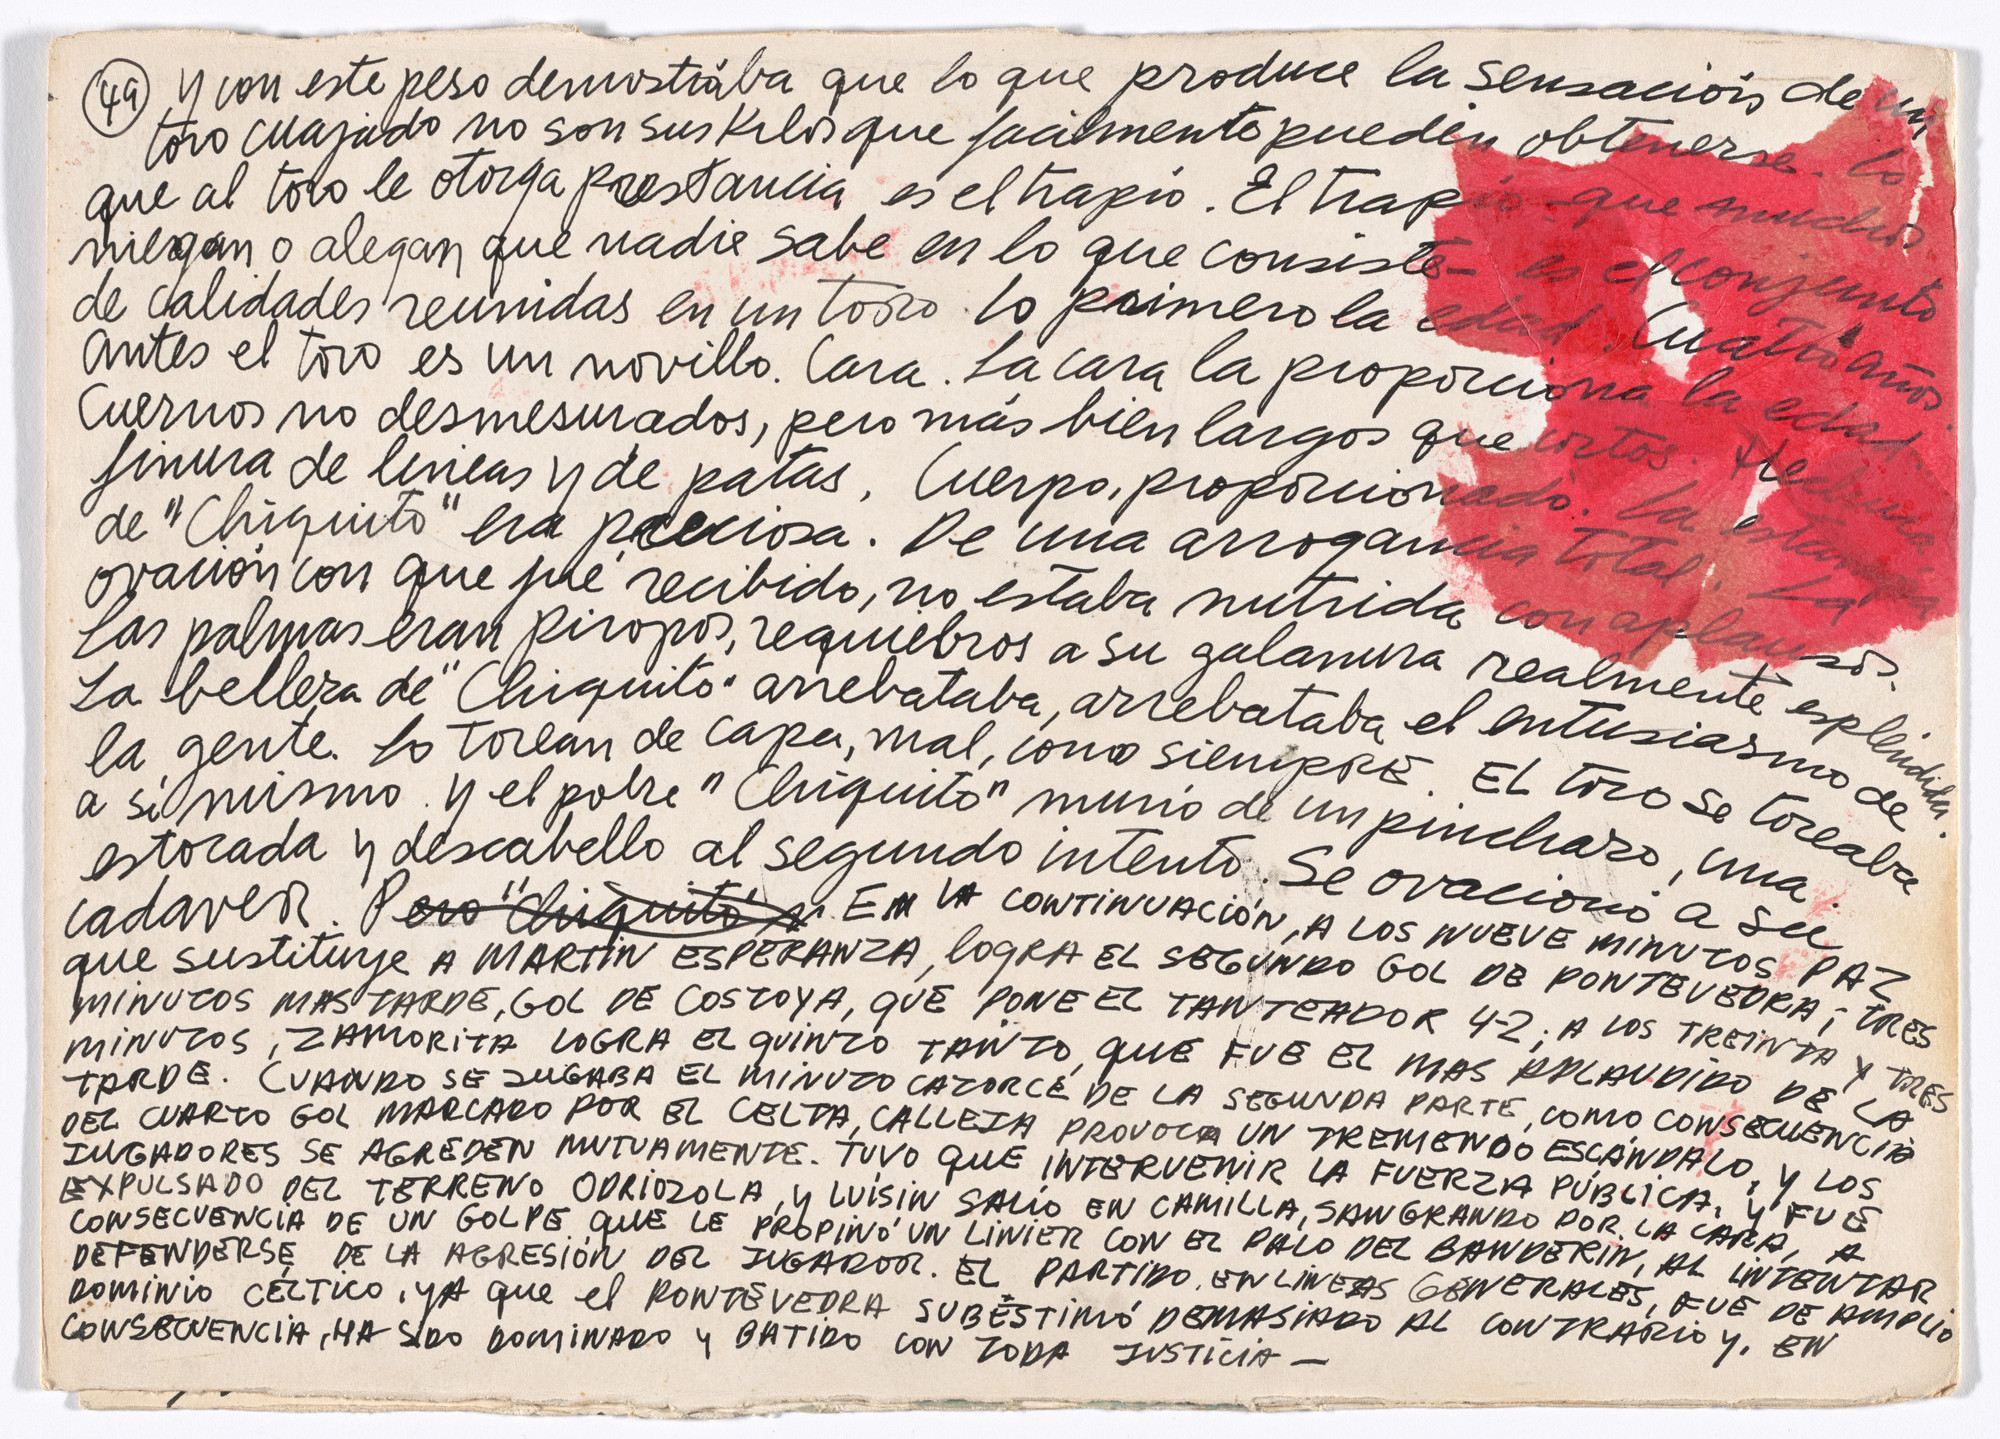 49 y con este peso demostraba que lo que produce la sensación de un
toro cuajado no son sus Kilos que facilmente pueden obtenerse. Lo
que al toro le otorga prestancia es el trapio. El trapio - que muchos
niegan o alegan que nadie sabe en lo que consiste - es el conjunto
de calidades reunidas en un toro. Lo primero la edad. Cuatro años
Antes el toro es un novillo. Cara. La cara la proporciona la edad.
Cuernos no desmesurados, pero más bien largos que cortos. Hechura
finura de lineas y de patas. Cuerpo, proporcionado. La estampa
de "Chiquito" era preciosa. De una arrogancia total. La
ovación con que fué recibido, no estaba nutrida con aplausos.
Las palmas eran piropos, requiebros a su galanura realmente espléndida.
La belleza de "Chiquito" arrebataba, arrebataba el entusiasmo de
la gente. Lo torean de capa, mal, como siempre. EL toro se toreaba
a sí mismo. y el pobre "Chiquito" murió de un pinchazo, una
estocada y descabello al segundo intento. Se ovacionó a su
cadaver. Pero "Chiquito" EN LA CONTINUACIÓN, A LOS NUEVE MINUTOS PAZ
que sustituye A MARTÍN ESPERANZA, LOGRA EL SEGUNDO GOL DE PONTEVEDRA; TRES
MINUTOS MAS TARDE, GOL DE COSTOYA, QUE PONE EL TANTEADOR 4-2; A LOS TREINTA Y TRES
MINUTOS, ZAMORITA LOGRA EL QUINTO TANTO, QUE FUE EL MAS APLAUDIDO DE LA
TARDE. CUANDO SE JUGABA EL MINUTO CATORCE DE LA SEGUNDA PARTE, COMO CONSECUENCIA
DEL CUARTO GOL MARCADO POR EL CELTA, CALLEJA PROVOCA UN TREMENDO ESCÁNDALO, Y LOS
JUGADORES SE AGREDEN MUTUAMENTE. TUVO QUE INTERVENIR LA FUERZA PÚBLICA, Y FUE
EXPULSADO DEL TERRENO ODRIOZOLA, Y LUÍSIN SALIO EN CAMILLA, SANGRANDO POR LA CARA, A
CONSECUENCIA DE UN GOLPE QUE LE PROPINÓ UN LINIER CON EL PALO DEL BANDERIN, AL INTENTAR
DEFENDERSE DE LA AGRESIÓN DEL JUGADOR. EL PARTIDO, EN LINEAS GENERALES, FUE DE AMPLIO
DOMINIO CÉLTICO, YA que el PONTEVEDRA SUBESTIMÓ DEMASIADO AL CONTRARIO Y, EN
CONSECUENCIA, HA SIDO DOMINADO Y BATIDO CON TODA JUSTICIA —